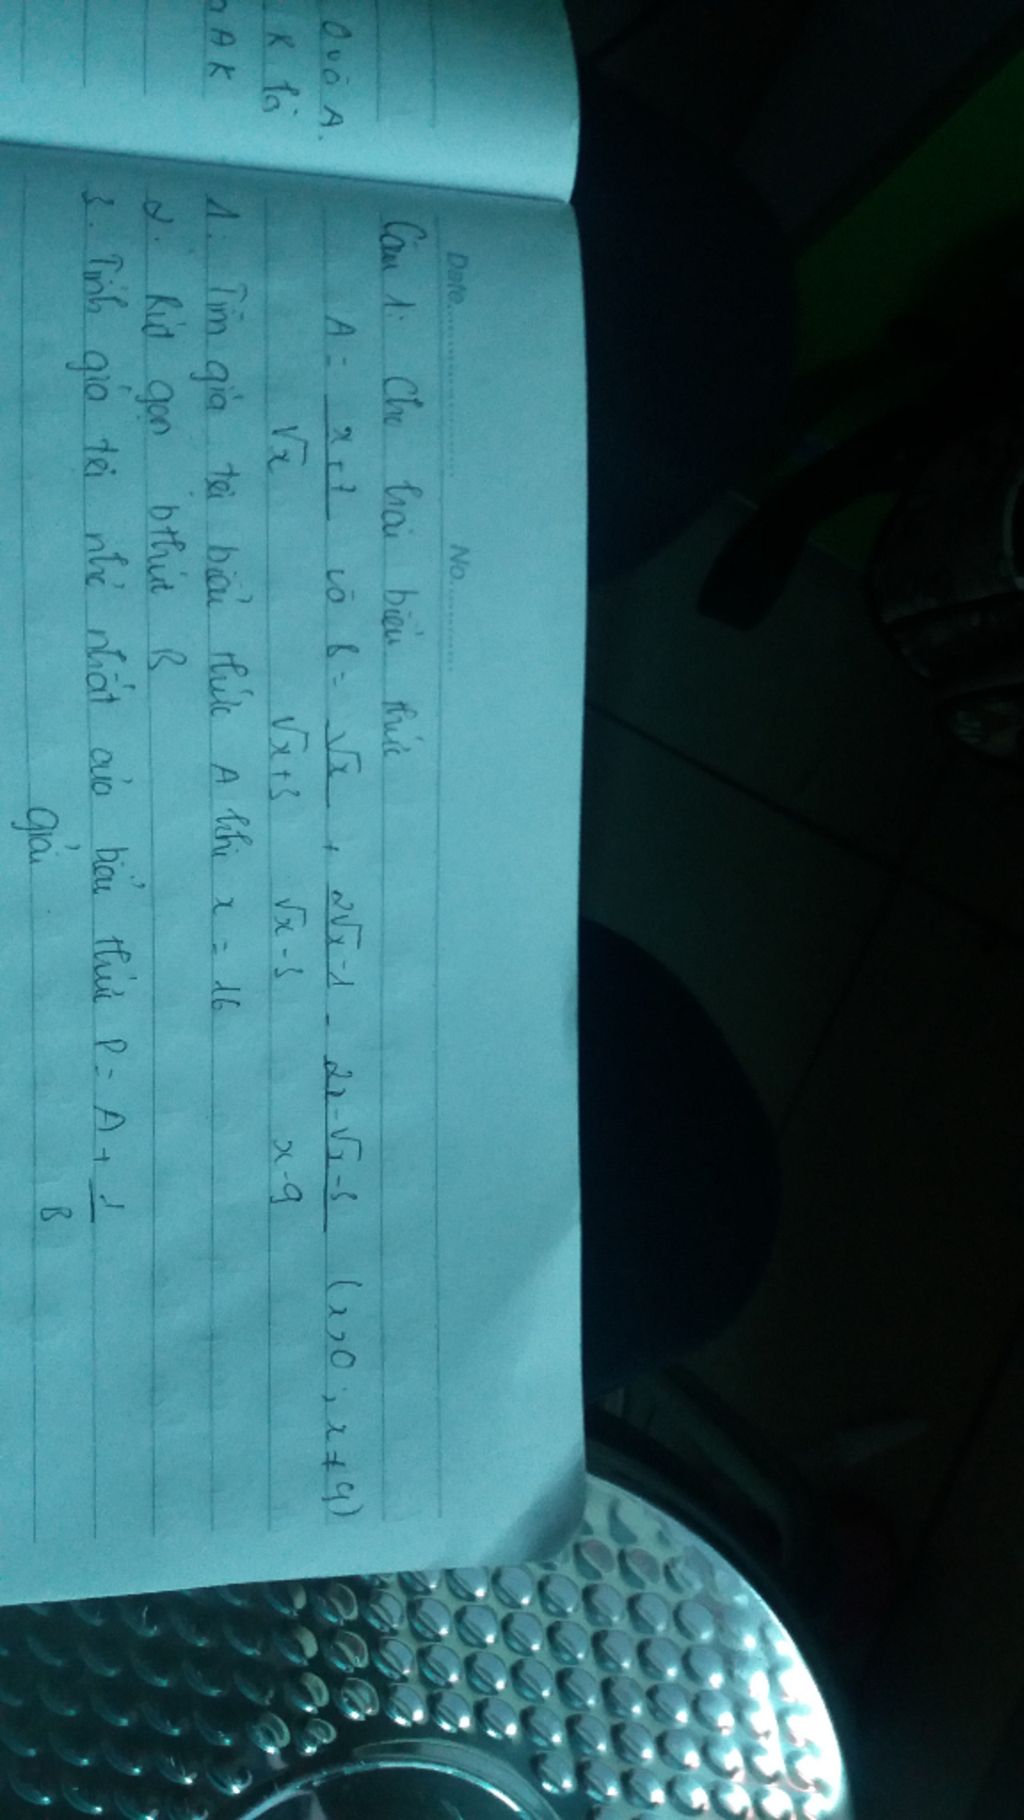 O và A.
K là
AK
Date............ No............
Câu 1. Cho hai biểu thức
A = x+7/√x và B = √x/√x+3 + 2√x-1/√x-3 - 2x-√x-3/x-9 (x>0; x≠9)
1. Tìm giá trị biểu thức A khi x = 16
2. Rút gọn bthức B
3. Tính giá trị nhỏ nhất của biểu thức P = A + 1/B
Giải